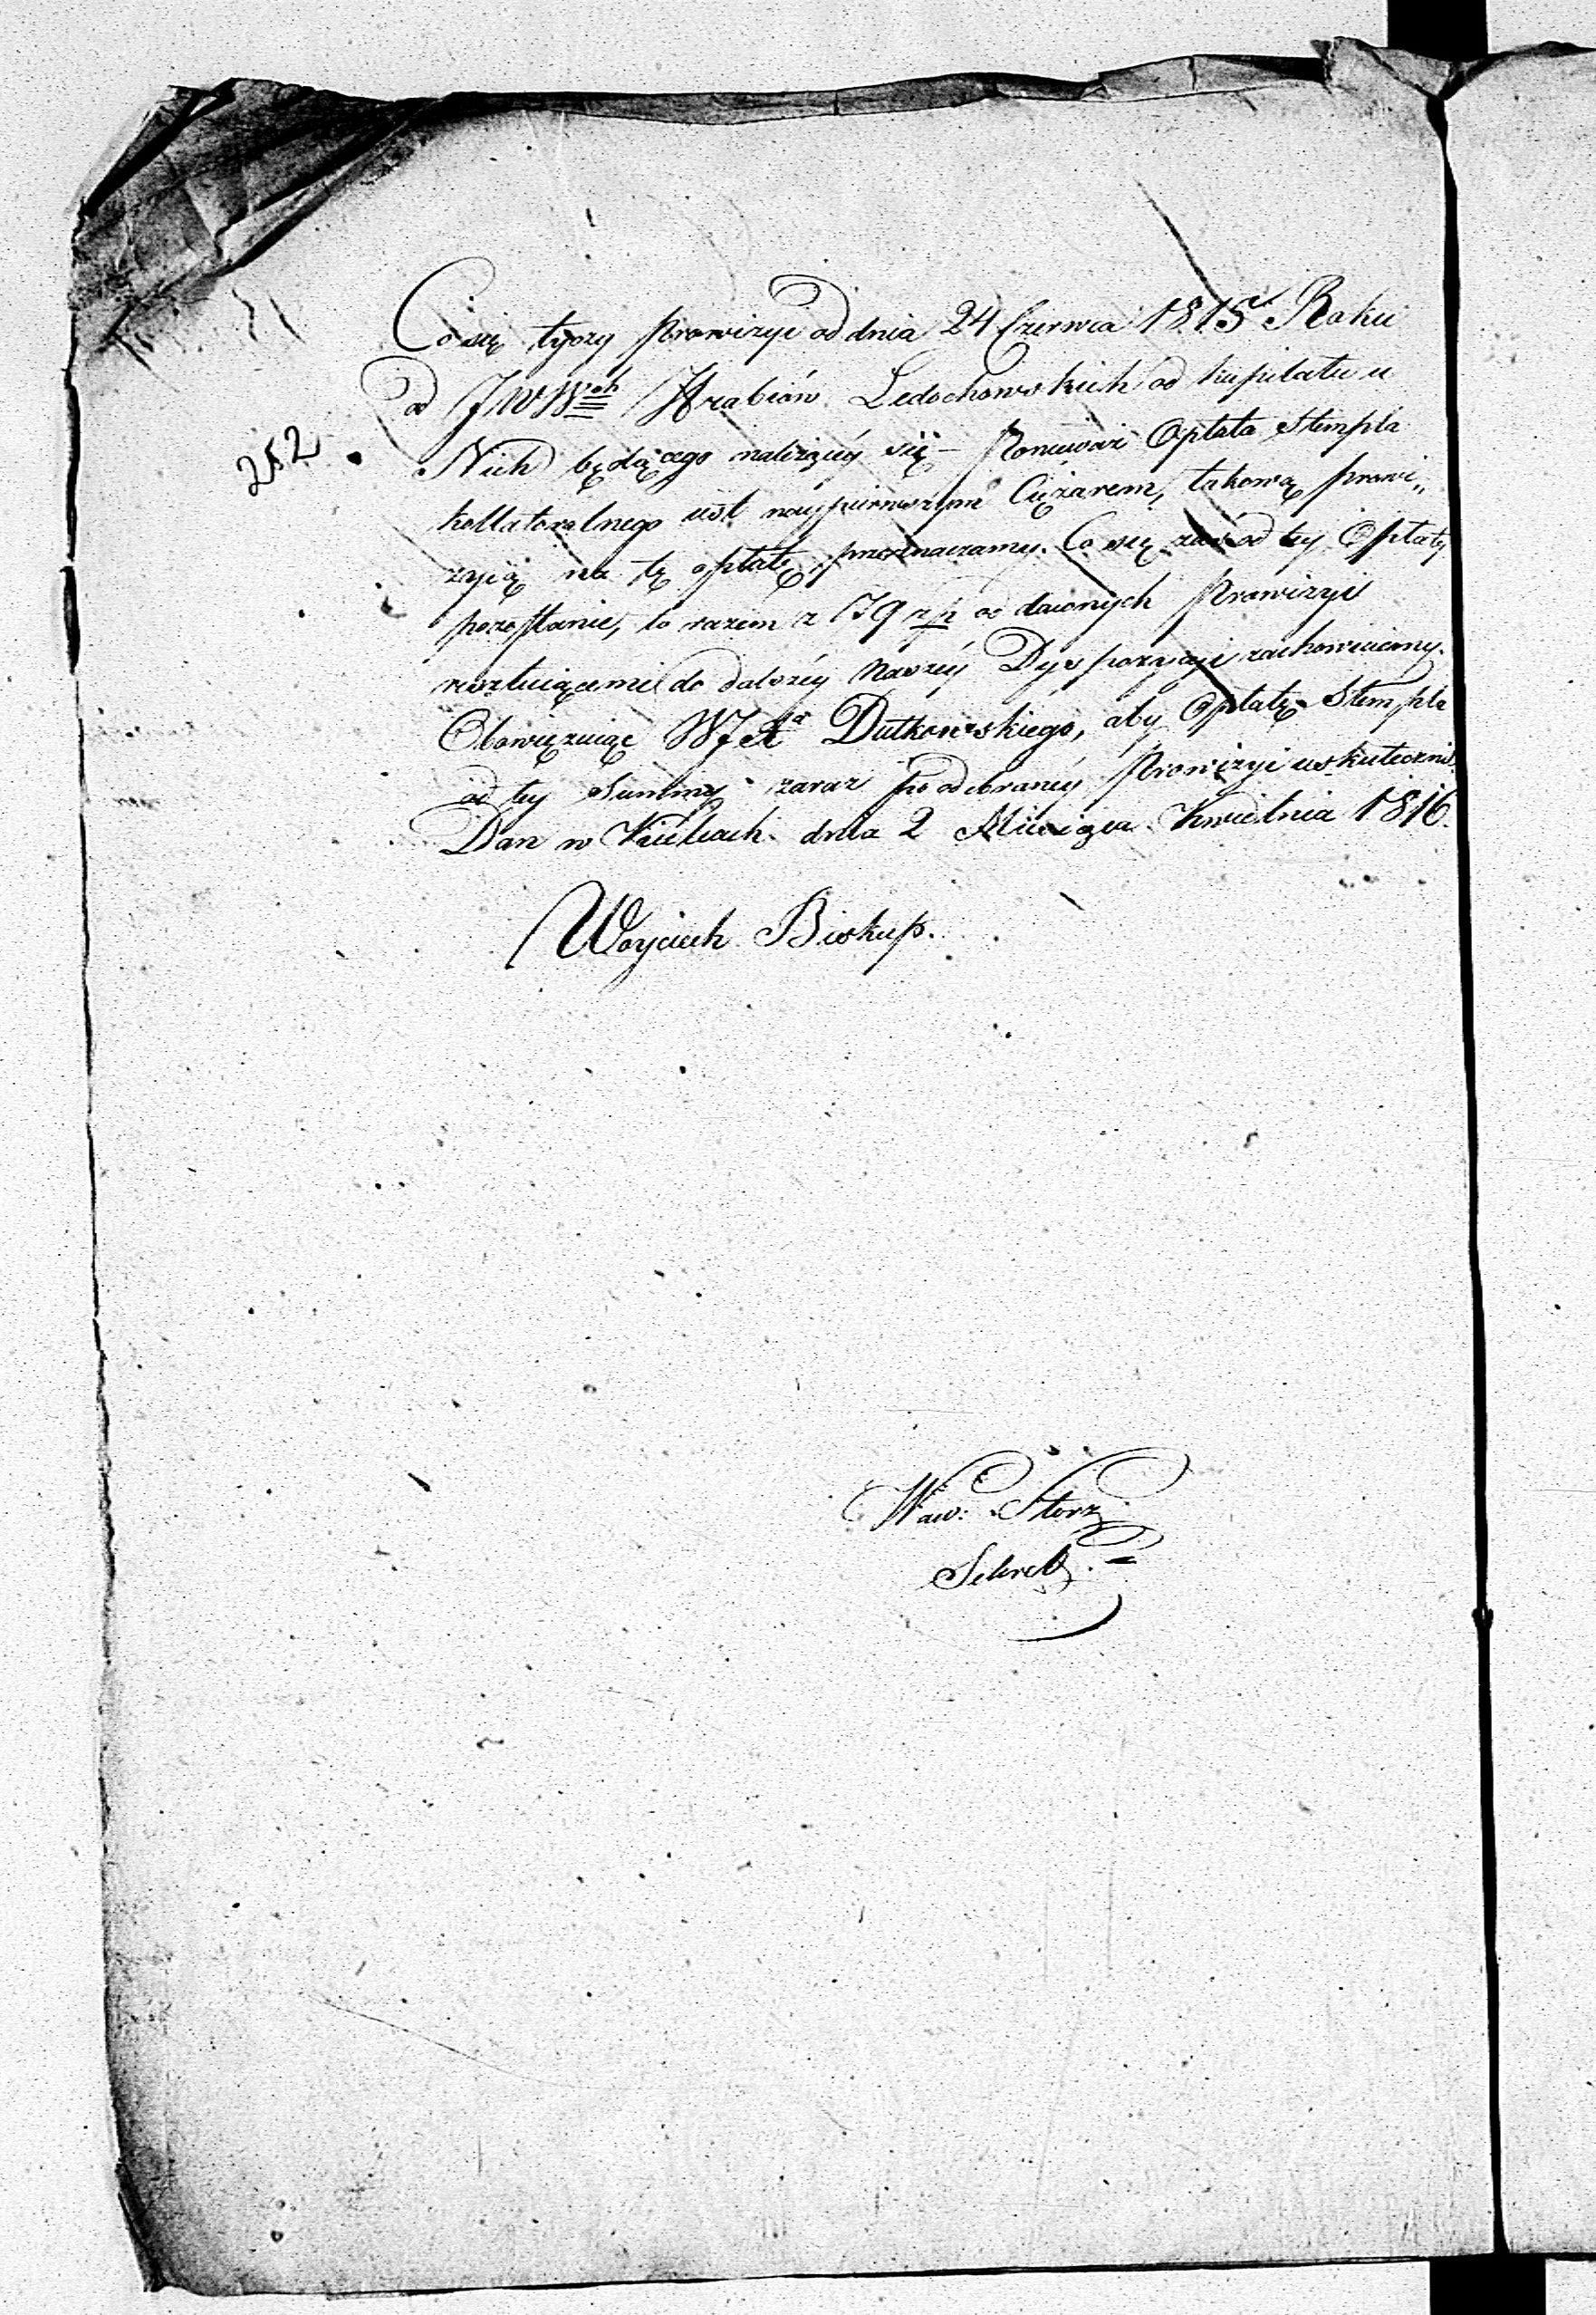 Co się tyczy Prowizyi od dnia 24 Czerwca 1815 Roku
od JWW<sup>ch</sup> Hrabiów Ledochowskich od kapitału u
252
Nich będącego należącey się – Ponieważ Opłata Stempla
kollateralnego iest naypierwszym Ciężarem, takową prowi„
zyią na tę opłatę przeznaczamy. Co się zaś od tey Opłaty
pozostanie, to razem z 79 zp od dawnych Prowizyi
resztuiącemi do dalszéy Naszéy Dyspozycyi zachowuiemy.
Obowięzuiąc WJX<sup>a</sup> Dutkowskiego, aby Opłatę Stempla
od tey Summy zaraz po odebranéy Prowizyi uskutecznił.
Dan w Kielcach dnia 2 Miesiąca Kwietnia 1816.
Woyciech Biskup.
Waw: Storz
Sekret.